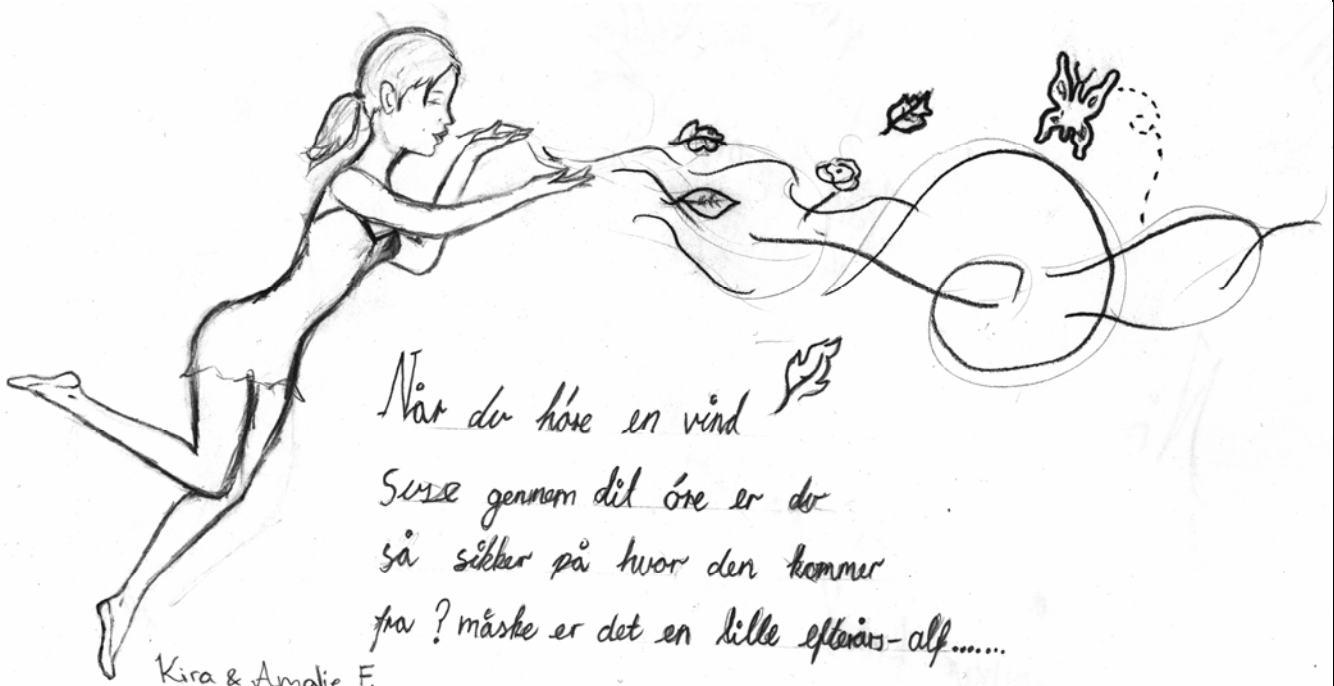 Når du hóre en vind
Suse gennem dit óre er du
så sikker på hvor den kommer
fra ? måske er det en lille efterårs-alf.......
Kira & Amalie F.